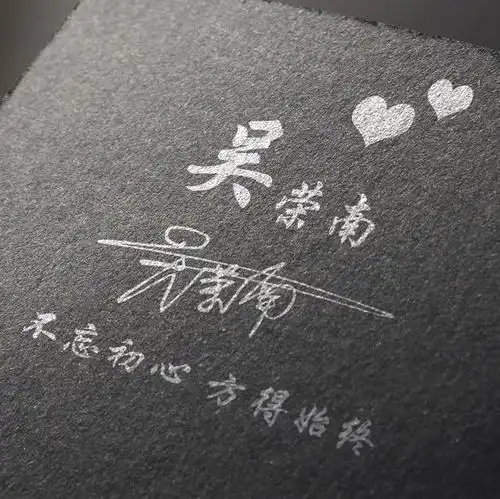 吴荣南
吴荣南
不忘初心 方得始终